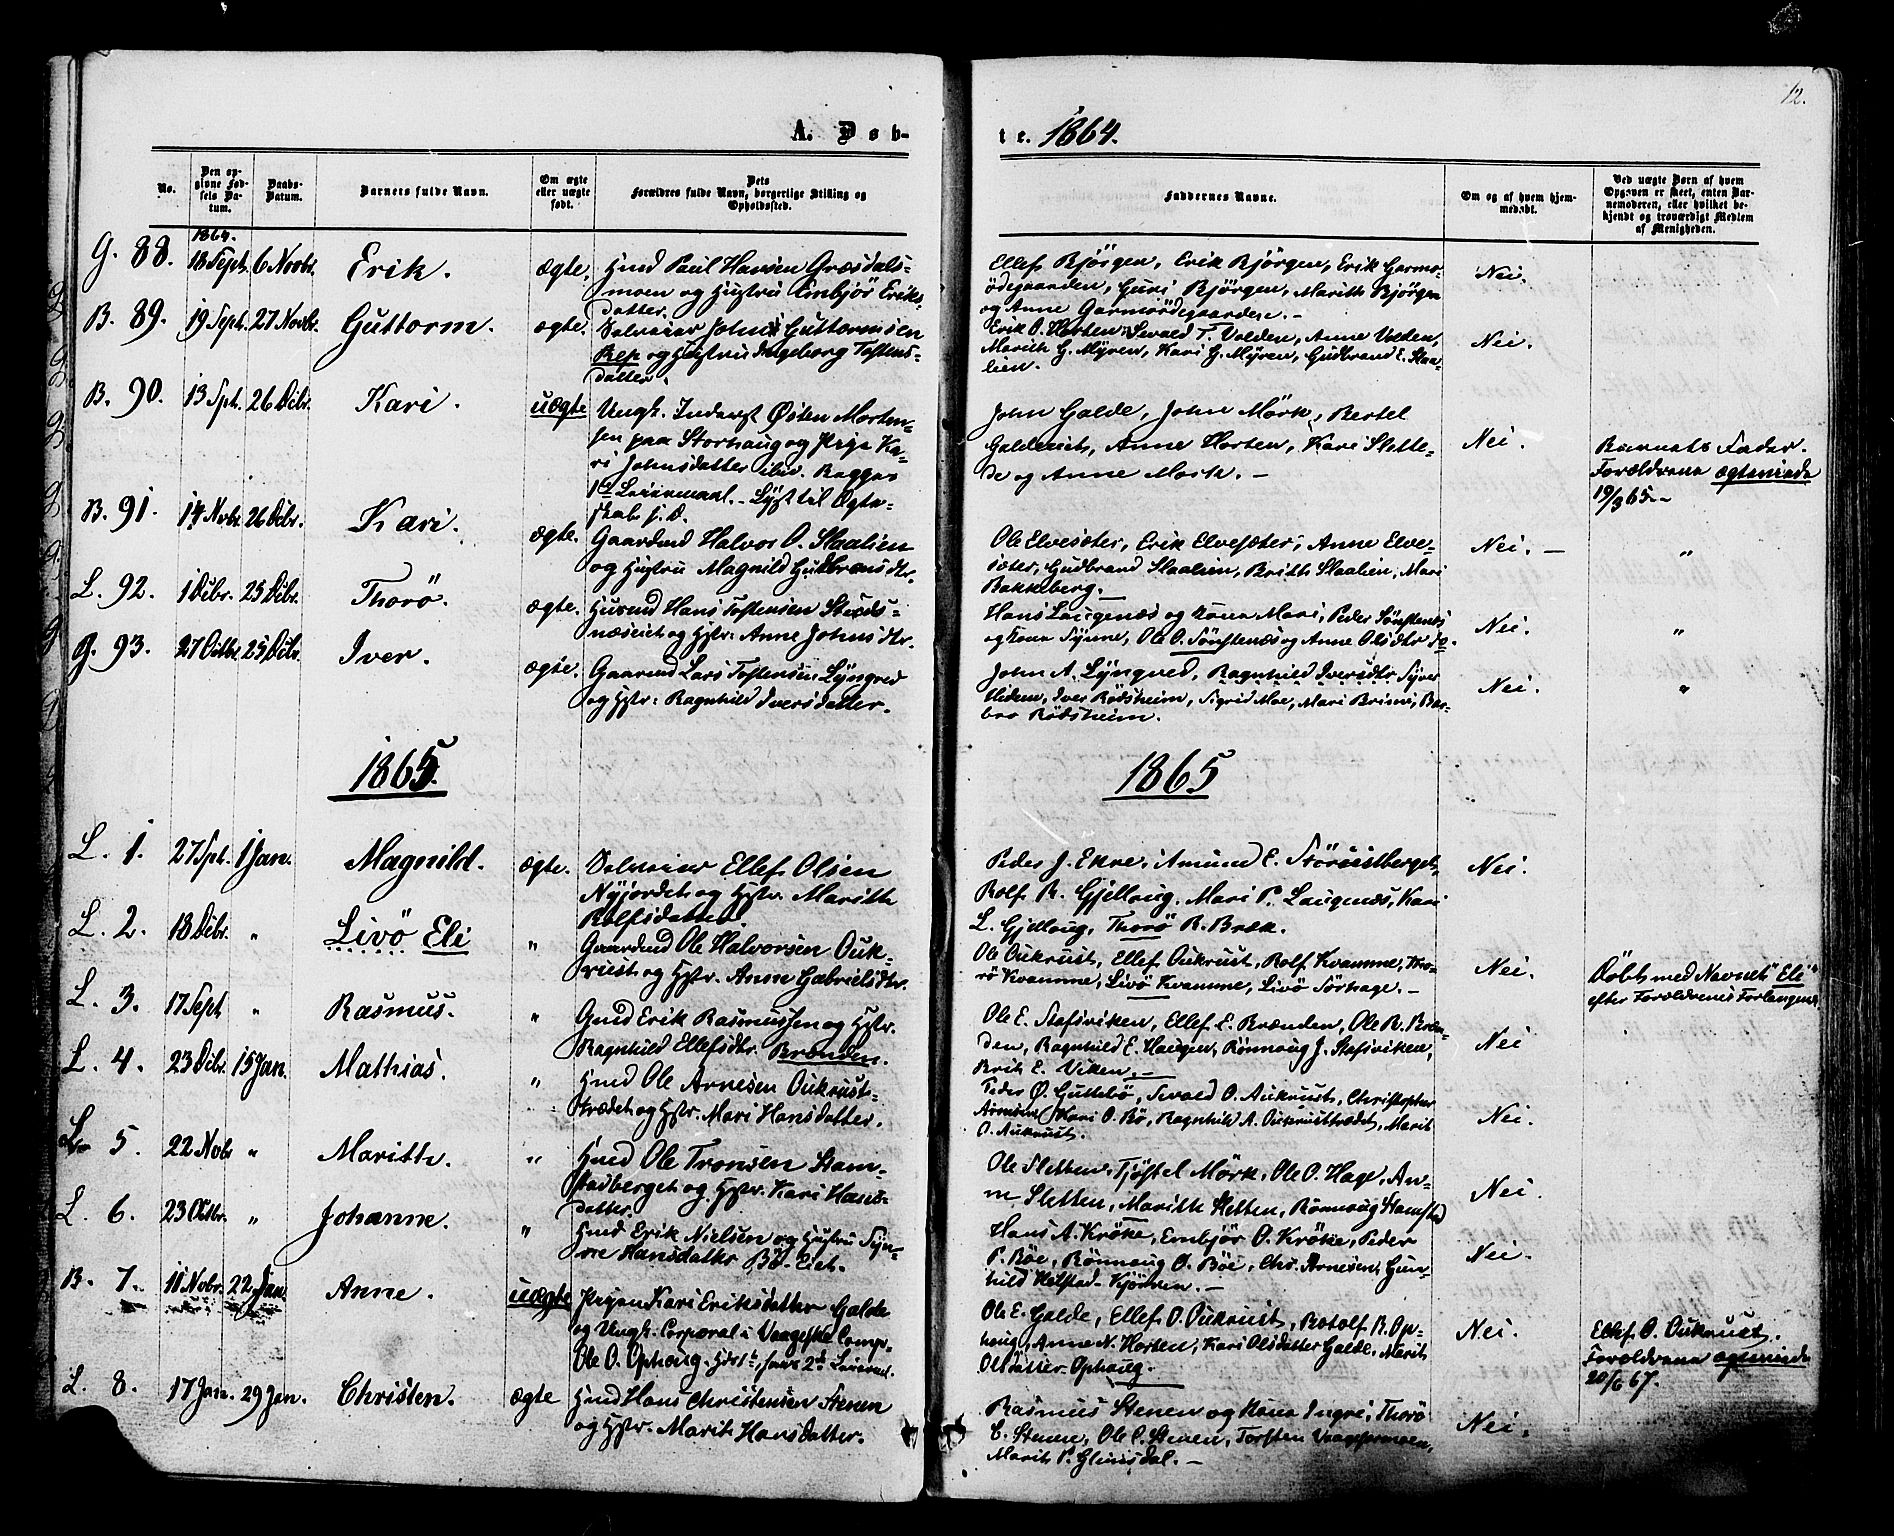 12.
A. Døb-
te. 1864.
No.
Den op-
givne Fød-
sels Da-
tum.
Daabs-
Datum.
Barnets fulde Navn.
Om ægte
eller uægte
født.
Dets
Forældres fulde Navn, borgerlige Stilling og
Opholdssted.
Faddernes Navne.
Om og af hvem hjem-
medøbt.
Ved uægte Børn af hvem
Opgaven er skeet, enten Bar-
nemoderen, eller hvilket be-
kjendt og troværdigt Medlem
af Menigheden.
1864.
G. 88. 18 Sept. 6 Novbr. Erik. ægte.
Hmd Paul Hansen Græsdals-
moen og Hustru Embjör Eriks
datter.
Ellef Bjørgen, Erik Bjørgen, Erik Garmo-
ødegaarden, Guri Bjørgen, Marith Bjørgen
og Anne Garmoödegaarden. -
Nei.
B. 89. 19 Sept. 27 Novbr. Guttorm. ægte.
John Guttormsen
Rep og Hustru Ingeborg Tostens-
datter.
Erik O. Horten, Sevald T. Volden, Anne Volden,
Marith G. Myren, Kari G. Myren, Gudbrand E. Slaa-
lien.
Nei.
B. 90. 13 Spt. 26 Dcbr. Kari. uægte
Ungk. Inderst Østen Morten-
sen paa Storhaug og Pige Ka-
ri Johnsdatter ibid. Begges
1ste Leiermaal. - Lyst til Ægte-
skab s. D.
John Galde, John Mörk, Bertel
Galdeeiet, Anne Horten, Kari Slette-
de og Anne Mork. -
Nei.
Barnets Fader.
Forældrene ægteviede
19/3 65. -
B. 91. 14 Novbr. 26 Dcbr. Kari. ægte.
Gaardmd Halvor O. Slaalien
og Hustru Magnild Gudbrandsdtr.
Ole Elvesæter, Erik Elvesæter, Anne Elve-
sæter, Gudbrand Slaalien, Brith Slaalien, Mari
Bakkeberg. -
Nei. - "
L. 92. 1 Dcbr. 25 Dcbr. Thorö. ægte.
Husmd Hans Tostensen
næseiet og Hstr: Anne Johnsdtr.
Hans Laugenæs og Kone Mari, Peder Sönstenæs
og Kone Synne, Ole O. Sönstenæs og Anne Olsdtr do.
Nei. "
G. 93. 27 Octbr. 25 Dcbr. Iver. ægte.
Gaardmd Lars Tostensen Lyngved
og Hstr: Ragnhild Iversdatter.
John A. Lyngved, Ragnhild Iversdtr Syver
Hidem, Iver Rödsheim, Sigrid Moe, Mari Brimi, Bar-
bro Rödsheim.
Nei. "
1865. 1865
L. 1. 27 Spt. 1 Jan. Magnild. ægte.
Ellef Olsen
Nyjordet og Hstr. Marith
Rolfsdatter.
Peder J. Ekre, Amund E.
Rolf R. Gjellaug, Mari P. Laugenæs, Kari
L. Gjellaug, Thorö R. Bræk.
Nei.
L. 2. 18 Dcbr. " Livö Eli "
Gaardmd Ole Halvorsen Ouk-
rust og Hstr. Anne Gabrielsdtr.
Ole Oukrust, Ellef Oukrust, Rolf Kvamme, Tho-
rö Kvamme, Livö Kvamme, Livö Sörhage. -
Nei.
Döbt med Navnet "Eli"
efter Forældrenes Forlangende
L. 3. 17 Sept " Rasmus. "
Gmd Erik Rasmussen og Hstr.
Ragnhild Ellefsdtr. Brænden.
Ole E. Stafsviken, Ellef E. Brænden, Ole R. Bræn-
den, Ragnhild E. Haugen, Rönnaug J. Stafsviken,
Brit E. Viken. -
Nei
L. 4. 23 Dcbr. 15 Jan. Mathias. "
Hmd Ole Arnesen Oukrust-
trædet og Hstr. Mari Hansdatter.
Peder Ø. Guttebö, Sevald O. Aukrust, Christopher
Arnesen, Mari O. Bö, Ragnhild A. Oukrusttrædet, Marit
O. Aukrust.
Nei.
L. 5. 22 Novbr " Marith. "
Hmd Ole Tronsen Stam-
stadberget og Hstr. Kari Hans-
datter.
Ole Sletten, Tjöstel Mörk, Ole O. Hage, An-
ne Sletten, Marith Sletten, Rönnaug Stamstad
Nei.
L. 6. 23 Octbr. " Johanne. "
Hmd Erik Nielsen og Hustru Syn-
nve Hansdatter Bö-Eiet.
Hans A. Kröke, Embjör O. Kröke, Peder
P. Böe, Rönnaug O. Böe, Chr. Arnesen, Gun-
hild Helstad-Kjörven. -
Nei.
B. 7. 11 Novbr. 22 Jan. Anne. uægte
Pigen Kari Eriksdatter Galde
og Ungk. Corporal i Vaageske Comp.
Ole O. Ophaug. Hdes 1ste, hans 2det Leierml.
Ole E. Galde, Ellef O. Oukrust, Rotolf R. Op-
haug, Anne N. Horten, Kari Olsdatter Galde, Marit
Olsdatter Ophaug.
Nei.
Ellef O. Oukrust.
Forældrene ægteviede
20/6 67.
L. 8. 17 Jan. 29 Jan. Christen. ægte
Hmd Hans Christensen Stenen
og Hstr. Marit Hansdatter.
Rasmus Stenen og Kone Ingri, Thorö
C. Stenen, Ole C. Stenen, Torsten
Marit P. Glimsdal. -
Nei.